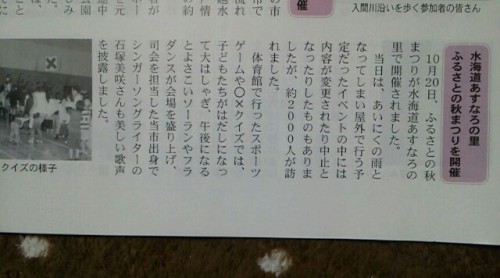 催
入間川沿いを歩く参加者の皆さん
水海道あすなろの里
ふるさとの秋まつりを開催
10月20日、ふるさとの秋
まつりが水海道あすなろの
里で開催されました。
当日は、あいにくの雨と
なってしまい屋外で行う予
定だったイベントの中には
内容が変更されたり中止と
なったりしたものもありま
したが、約2000人が訪
れました。
体育館で行ったスポーツ
ゲームや〇×クイズでは、
子どもたちがはだしになっ
て大はしゃぎ、午後になる
とよさこいソーランやフラ
ダンスが会場を盛り上げ、
司会を担当した当市出身で
シンガーソングライターの
石塚美咲さんも美しい歌声
を披露しました。
クイズの様子